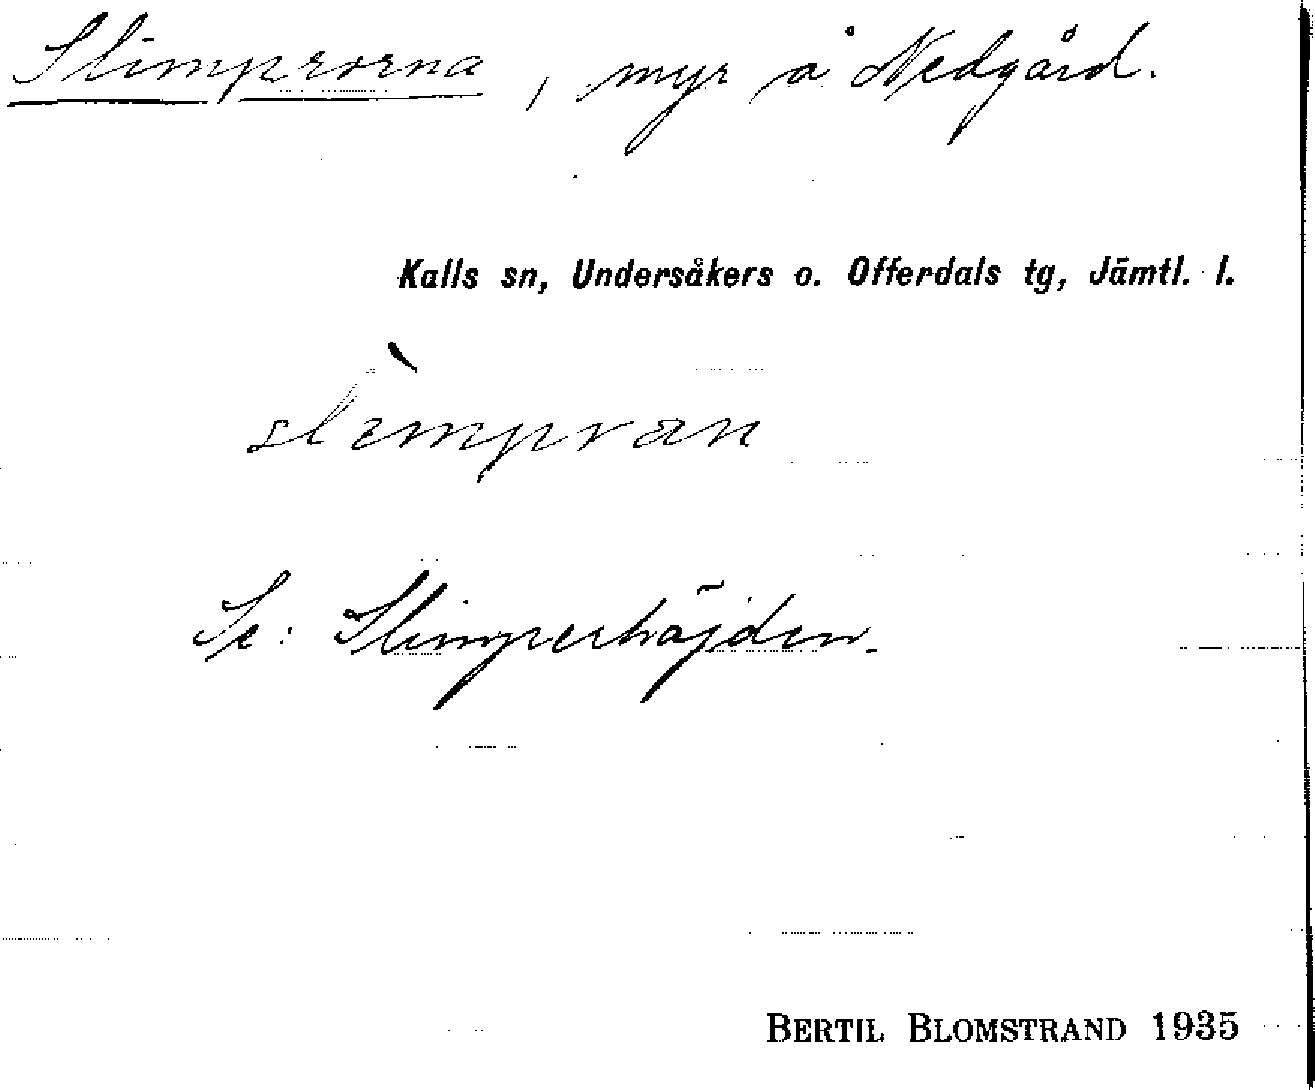 Slimprorna, myr å Nedgård.
Kalls sn, Undersåkers o. Offerdals tg, Jämtl. l.
Se: Slimperhöjden.
BERTIL BLOMSTRAND 1935